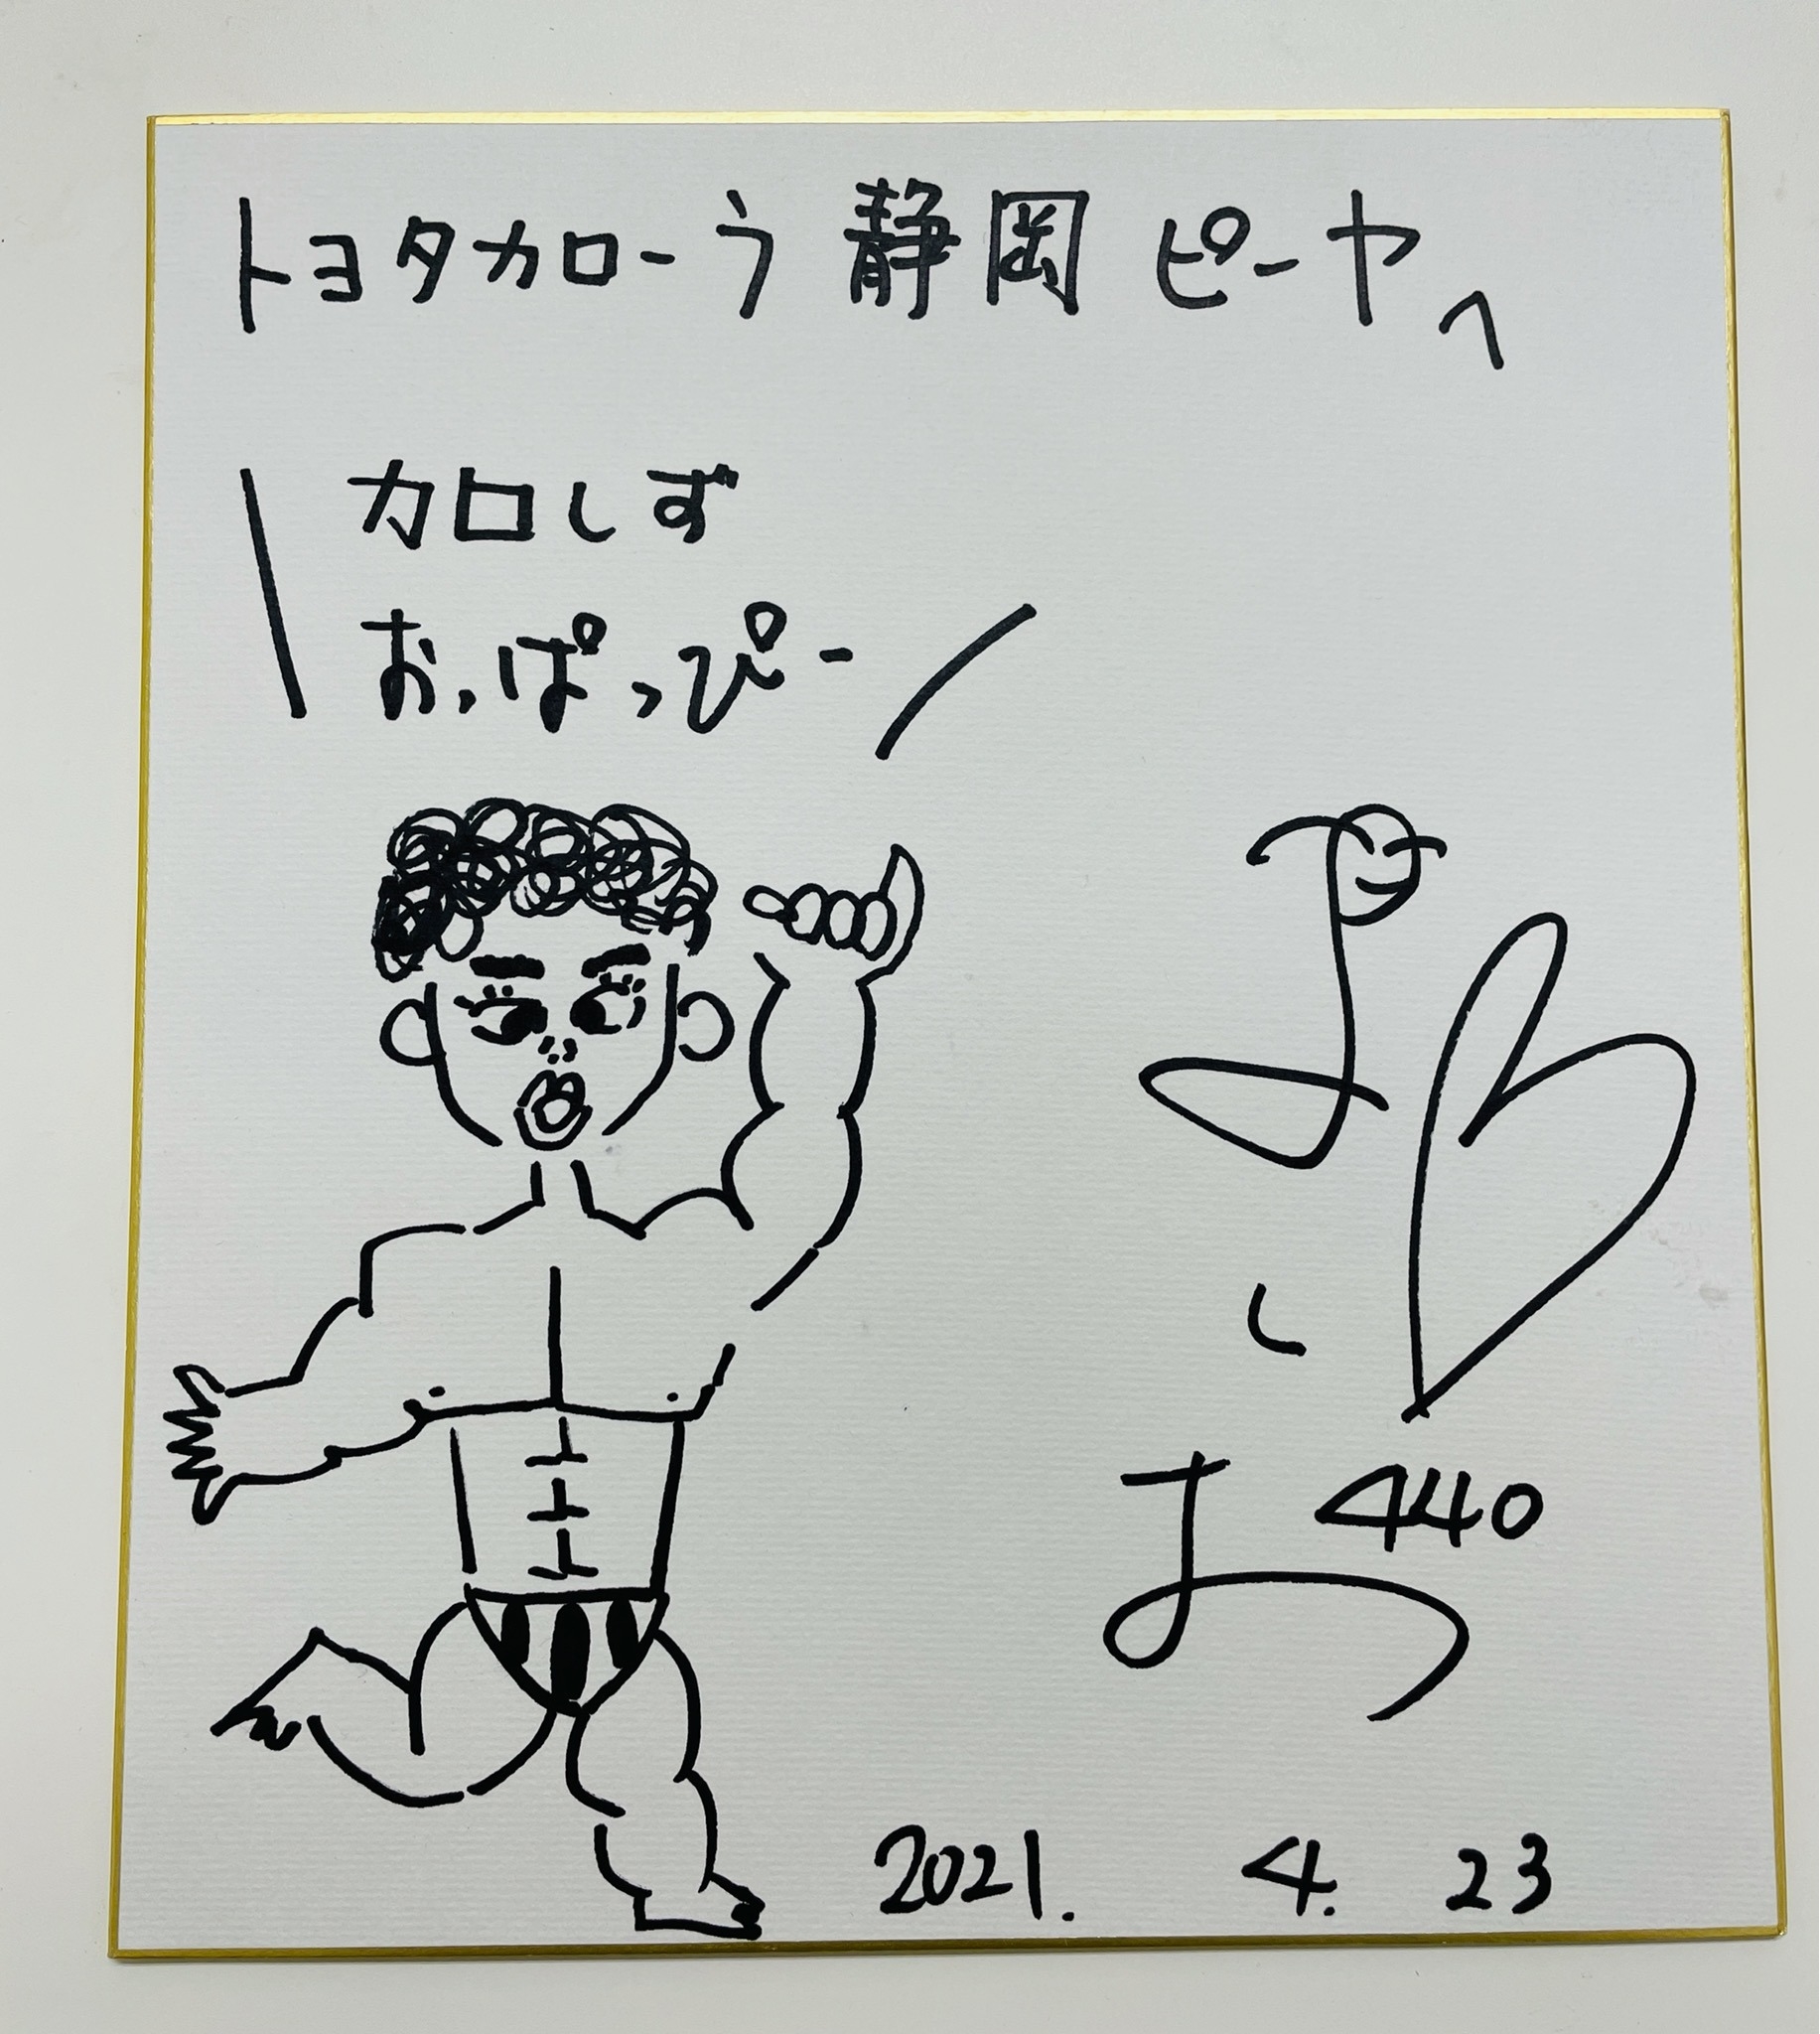 トヨタカローラ 静岡 ピーヤへ
カロしず
おっぱっぴー
よ
し
お 440
2021. 4. 23